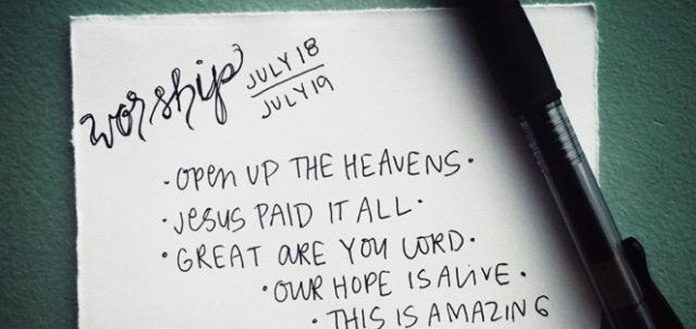 worship JULY 18
JULY 19
• OPEN UP THE HEAVENS •
• JESUS PAID IT ALL •
• GREAT ARE YOU LORD •
• OUR HOPE IS ALIVE •
• THIS IS AMAZING